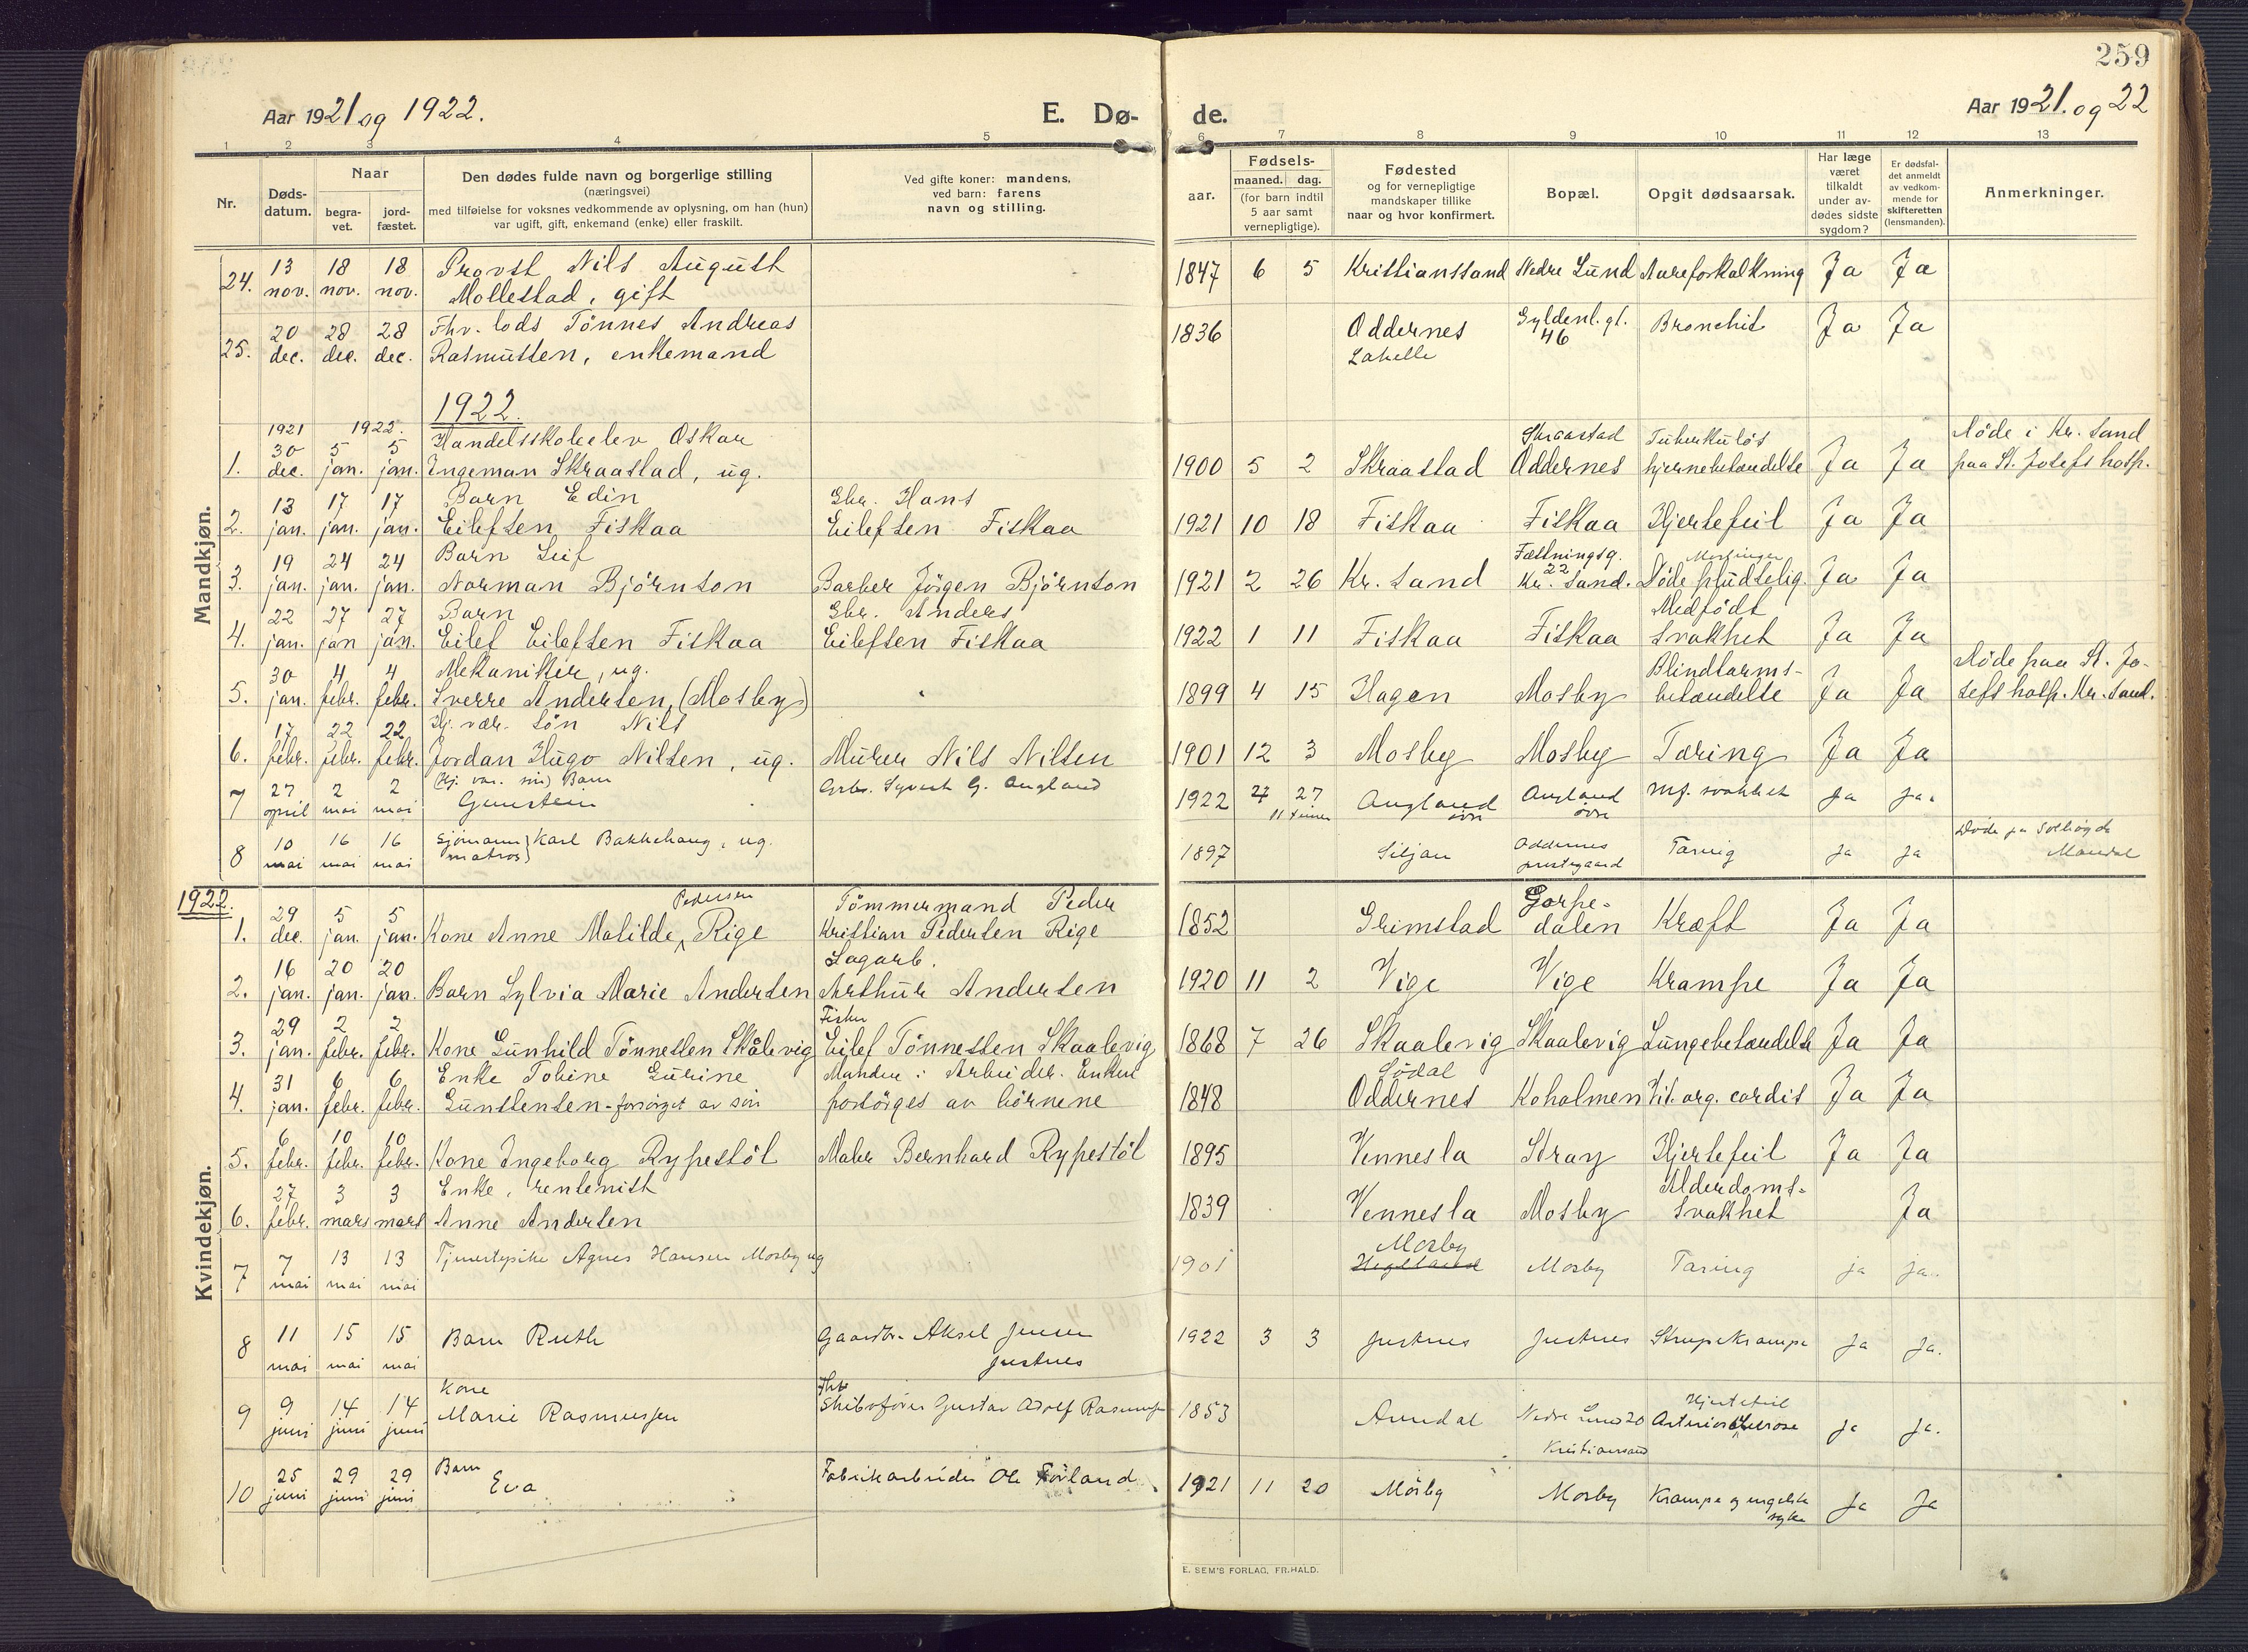 259
Aar 1921 og 1922.
E. Dø-
de.
Aar 1921. og 22
1 2 3 4 5 6 7 8 9 10 11 12 13
Nr.
Døds-
datum.
Naar
begra-
vet.
jord-
fæstet.
Den dødes fulde navn og borgerlige stilling
(næringsvei)
med tilføielse for voksnes vedkommende av oplysning, om han (hun)
var ugift, gift, enkemand (enke) eller fraskilt.
Ved gifte koner: mandens,
ved barn: farens
navn og stilling.
aar.
Fødsels-
maaned. dag.
(for barn indtil
5 aar samt
vernepligtige).
Fødested
og for vernepligtige
mandskaper tillike
naar og hvor konfirmert.
Bopæl.
Opgit dødsaarsak.
Har læge
været
tilkaldt
under av-
dødes sidste
sygdom?
Er dødsfal-
det anmeldt
av vedkom-
mende for
skifteretten
(lensmanden).
Anmerkninger.
Mandkjøn.
24. 13 nov. 18 nov. 18 nov. Provst Nils August
Mollestad, gift
1847 6 5 Kristianssand Nedre Lund Aareforkalkning Ja Ja
25. 20 dec. 28 dec. 28 dec. Fhv. lods Tönnes Andreas
Rasmussen, enkemand
1836 Oddernes Gyldenl. gt. 46 Bronchit Ja Ja
1922.
1921 1922.
1. 30 dec. 5 jan. 5 jan. Handelsskoleelev Oskar
Ingeman Skraastad, ug.
1900 5 2 Skraastad Skraastad Oddernes Tuberkuløs hjernebetændelse Ja Ja Døde i Kr. sand
paa St. Josefs hosp.
2. 13 jan. 17 jan. 17 jan. Barn Edin
Eilefsen Fiskaa Gbr. Hans
Eilefsen Fiskaa
1921 10 18 Fiskaa Fiskaa Hjertefeil Ja Ja
3. 19 jan. 24 jan. 24 jan. Barn Leif
Norman Björnson Barber Jörgen Björnson
1921 2 26 Kr. sand Fæstningsg. 22 Kr. sand. Døde pludselig Ja Ja
4. 22 jan. 27 jan 27 jan. Barn
Eilef Eilefsen Fiskaa Gbr. Anders
Eilefsen Fiskaa
1922 1 11 Fiskaa Fiskaa Medfödt svakhet Ja Ja
5. 30 jan. 4 febr. 4 febr. Mekaniker, ug.
Sverre Andersen, (Mosby)
1899 4 15 Hagen Mosby Blindtarms-
betændelse Ja Ja Døde paa St. Jo-
sefs hosp. Kr. sand.
6. 17 febr. 22 febr. 22 febr. Hj. vær. sön Nils
Jordan Hugo Nilsen, ug. Murer Nils Nilsen
1901 12 3 Mosby Mosby Tæring Ja Ja
7 27 april 2 mai 2 mai Barn
Gunstein G. Augland
1922 4 27 11 timer Augland övre Augland övre mf. svakhet Ja ja.
8 10 mai 16 mai 16 mai Sjömann matros Karl Bakkehaug, ug.
1897 Siljan Oddernes prestegaard Tæring ja ja Døde pa Solhøgda
Mandal
1922.
Kvindekjøn.
1. 29 dec. 5 jan. 5 jan. Kone Anne Matilde Pedersen Rige Tömmermand Peder
Kristian Pedersen Rige
1852 Grimstad Gorpe-
dalen Kræft Ja Ja
2. 16 jan. 20 jan. 20 jan. Barn Sylvia Marie Andersen Sagarb.
Arthur Andersen
1920 11 2 Vige Vige Krampe Ja Ja
3. 29 jan. 2 febr. 2 febr. Kone Gunhild Tönnessen Skålevig Fisker
Eilef Tönnessen Skaalevig
1868 7 26 Skaalevig Skaalevig Lungebetændelse Ja Ja
4. 31 jan. 6 febr. 6 febr. Enke Tobine Gurine
Gunstensen - forsörget av sön Manden: Arbeider. Enken
forsörges av börnene
1848 Södal
Oddernes Koholmen Vit. org. cordis Ja Ja
5. 6 febr. 10 febr. 10 febr. Kone Ingeborg Rypestöl Maler Bernhard Rypestöl
1895 Vennesla Stray Hjertefeil Ja Ja
6. 27 febr. 3 mars 3 mars Enke, rentenist
Anne Andersen
1839 Vennesla Mosby Alderdoms-
svakhet Ja
7 7 mai 13 mai 13 mai Tjenestepike Agnes Hansen Mosby ug
1901 Mosby Mosby Tæring ja ja.
8 11 mai 15 mai 15 mai Barn Ruth Gaardbr. Aksel Jensen
Justnes
1922 3 3 Justnes Justnes Strupekrampe Ja Ja.
9 9 juni 14 juni 14 juni Kone
Marie Rasmussen Fhv
Skibsförer Gustav Adolf Rasmussen
1853 Arendal Nedre Lund 20
Kristianssand Hjertefeil Ja Ja.
10 25 juni 29 juni 29 juni Barn
Eva Fabrikarbeider Ole Förland
1921 11 20 Mosby Mosby Krampe og engelske
syke Ja Ja
E. SEM'S FORLAG, FR.HALD.